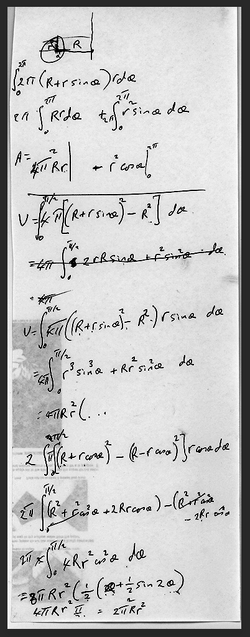 R
∫₀^{2π} 2π (R+r sinθ) r dθ
2π ∫₀^{2π} Rr dθ + 2π ∫₀^{2π} r² sinθ dθ
A = 4π² Rr | + r² cosθ |₀^{2π}
V = ∫₀^{π/2} 4π [(R+r sinθ)² − R²] dθ
= 4π ∫₀^{π/2} 2rR sinθ + r² sin²θ · dθ
= 4π
V = ∫₀^{π/2} 4π ((R+r sinθ)² − R²) r sinθ dθ
= 4π ∫₀^{π/2} r³ sin³θ + Rr² sin²θ dθ
= 4πRr² (...
2 ∫₀^{π/2} π [(R+r cosθ)² − (R−r cosθ)²] r cosθ dθ
2π ∫₀^{π/2} (R² + r² cos²θ + 2Rr cosθ) − (R² + r² cos²θ − 2Rr cosθ
2π × ∫₀^{π/2} 4Rr² cos²θ dθ
= 8πRr² (½ (θ + ½ sin 2θ)
4πRr² π/2 = 2π² Rr²